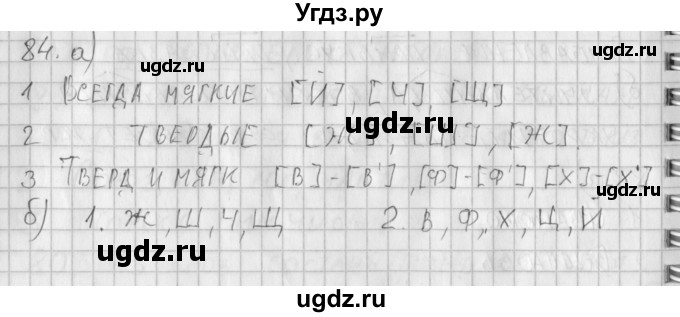 Угдз.ру
84. а)
ugdz.ru ugdz.ru
1 Всегда мягкие [Й], [Ч], [Щ]
ugdz.ru
2 твердые [Ж], [Ж].
3 Тверд и мягк [В]-[В'], [Ф]-[Ф'], [Х]-[Х']
ugdz.ru
б) 1. Ж, Ш, Ч, Щ 2. В, Ф, Х, Ц, Й
ugdz.ru ugdz.ru
ugdz.ru